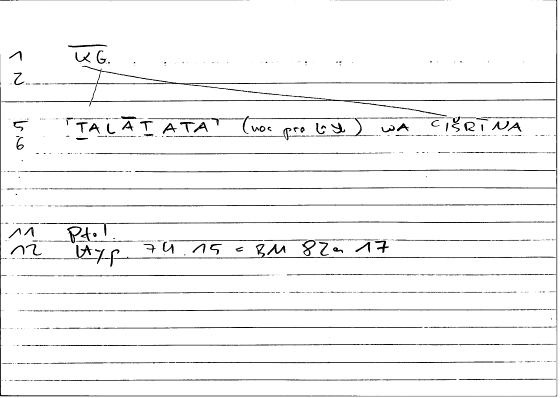 1 K͞G.
2
5 ⌜ṮALĀṮATA⌝ (voc pro ) WA ʿIŠRĪNA
6
11 Ptol.
12 Hyp. 74.15 = BM 82a 17